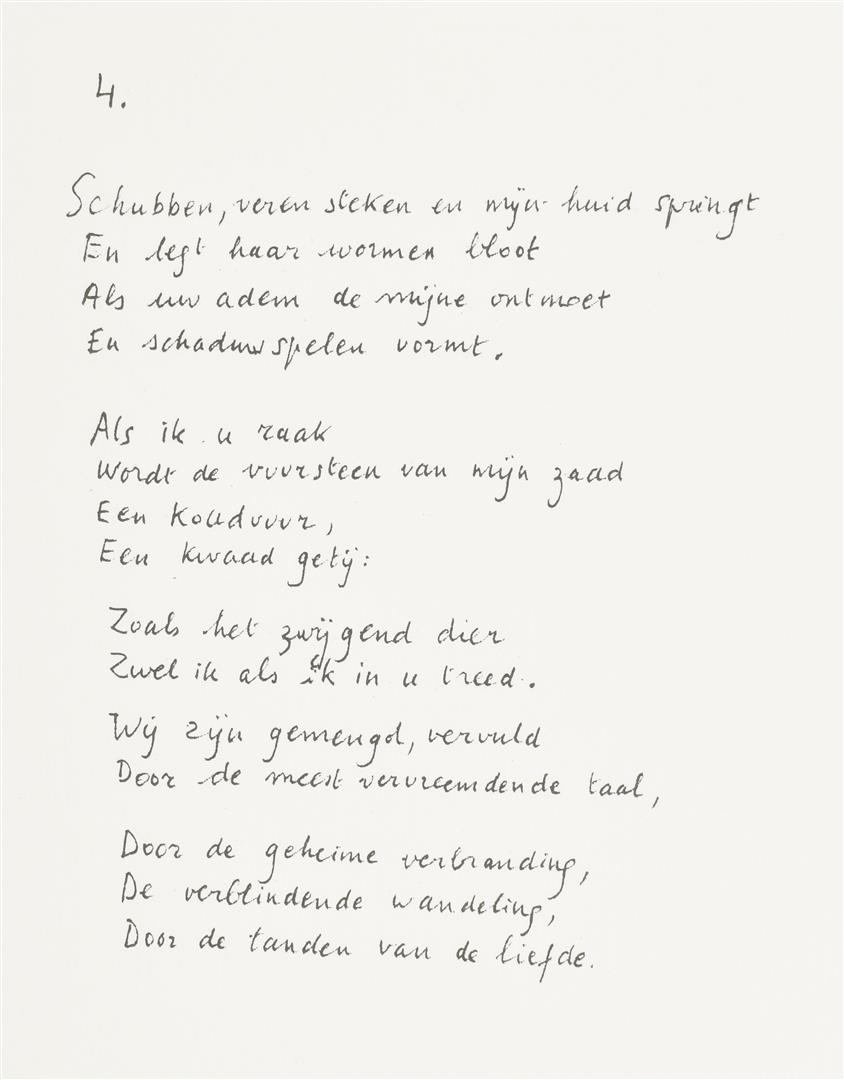 4.
Schubben, veren steken en mijn huid springt
En legt haar wormen bloot
Als uw adem de mijne ontmoet
En schaduwspelen vormt.
Als ik u raak
Wordt de vuursteen van mijn zaad
Een koudvuur,
Een kwaad getij:
Zoals het zwijgend dier
Zwel ik als ik in u treed.
Wij zijn gemengd, vervuld
Door de meest vervreemdende taal,
Door de geheime verbranding,
De verblindende wandeling,
Door de tanden van de liefde.